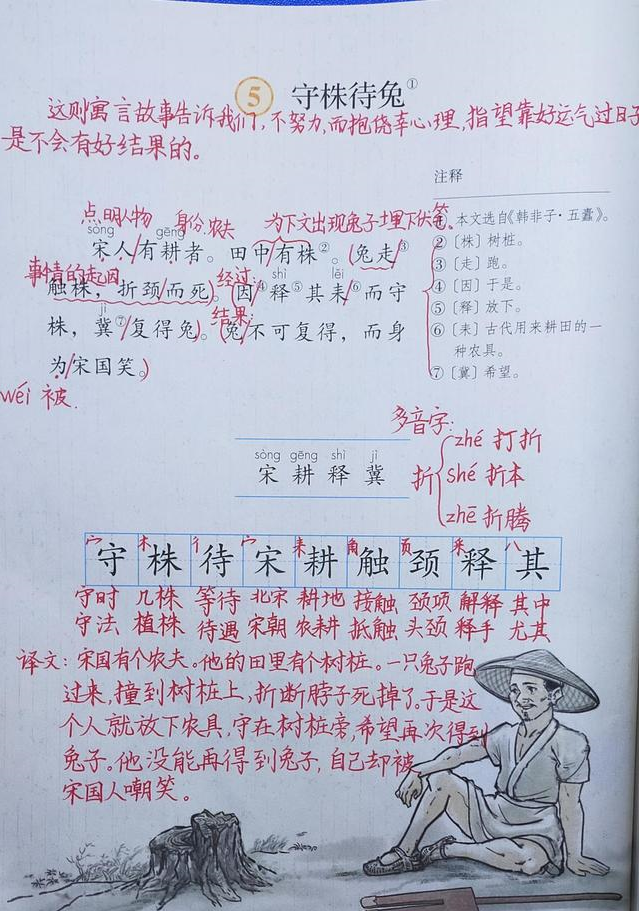 5 守株待兔①
这则寓言故事告诉我们,不努力,而抱侥幸心理,指望靠好运气过日子
是不会有好结果的。
注释
点明人物 身份:农夫 为下文出现兔子埋下伏笔
sòng gēng
宋人有耕者。田中有株②。兔走③
事情的起因 经过: shì lěi
触株,折颈而死。因④释⑤其耒⑥而守
jì 结果:
株,冀⑦复得兔。兔不可复得,而身
为宋国笑。
wéi 被
① 本文选自《韩非子·五蠹》。
②〔株〕树桩。
③〔走〕跑。
④〔因〕于是。
⑤〔释〕放下。
⑥〔耒〕古代用来耕田的一
种农具。
⑦〔冀〕希望。
多音字:
折 zhé 打折
shé 折本
zhē 折腾
sòng gēng shì jì
宋 耕 释 冀
宀 木 彳 宀 耒 角 页 釆 八
守 株 待 宋 耕 触 颈 释 其
守时 几株 等待 北宋 耕地 接触 颈项 解释 其中
守法 植株 待遇 宋朝 农耕 抵触 头颈 释手 尤其
译文:宋国有个农夫。他的田里有个树桩。一只兔子跑
过来,撞到树桩上,折断脖子死掉了。于是这
个人就放下农具,守在树桩旁,希望再次得到
兔子。他没能再得到兔子,自己却被
宋国人嘲笑。